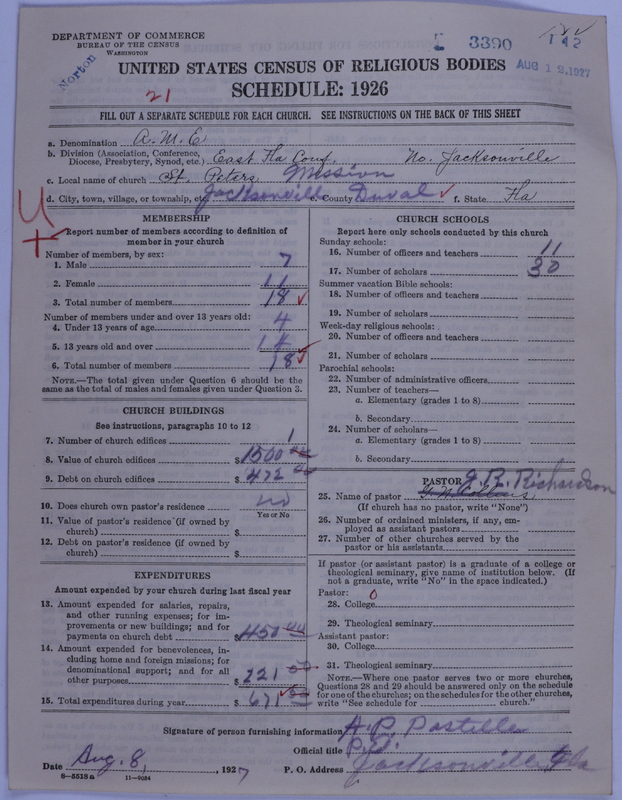 DEPARTMENT OF COMMERCE
BUREAU OF THE CENSUS
WASHINGTON
Norton
3390
142
AUG 12 1927
UNITED STATES CENSUS OF RELIGIOUS BODIES
SCHEDULE: 1926
21
FILL OUT A SEPARATE SCHEDULE FOR EACH CHURCH. SEE INSTRUCTIONS ON THE BACK OF THIS SHEET
a. Denomination A. M. E
b. Division (Association, Conference, Diocese, Presbytery, Synod, etc.) East Fla Conf. No. Jacksonville
c. Local name of church St. Peters Mission
d. City, town, village, or township, etc. Jacksonville e. County Duval f. State Fla
MEMBERSHIP
Report number of members according to definition of
member in your church
Number of members, by sex:
1. Male 7
2. Female 11
3. Total number of members 18
Number of members under and over 13 years old:
4. Under 13 years of age 4
5. 13 years old and over 14
6. Total number of members 18
NOTE.—The total given under Question 6 should be the
same as the total of males and females given under Question 3.
CHURCH BUILDINGS
See instructions, paragraphs 10 to 12
7. Number of church edifices 1
8. Value of church edifices $1500 00
9. Debt on church edifices $472 00
10. Does church own pastor's residence? no
Yes or No
11. Value of pastor's residence (if owned by
church) $
12. Debt on pastor's residence (if owned by
church) $
EXPENDITURES
Amount expended by your church during last fiscal year
13. Amount expended for salaries, repairs,
and other running expenses; for im-
provements or new buildings; and for
payments on church debt $450 00
14. Amount expended for benevolences, in-
cluding home and foreign missions; for
denominational support; and for all
other purposes $221
15. Total expenditures during year $671
CHURCH SCHOOLS
Report here only schools conducted by this church
Sunday schools:
16. Number of officers and teachers 11
17. Number of scholars 30
Summer vacation Bible schools:
18. Number of officers and teachers
19. Number of scholars
Week-day religious schools:
20. Number of officers and teachers
21. Number of scholars
Parochial schools:
22. Number of administrative officers
23. Number of teachers—
a. Elementary (grades 1 to 8)
b. Secondary
24. Number of scholars—
a. Elementary (grades 1 to 8)
b. Secondary
PASTOR J. R. Richardson
25. Name of pastor
(If church has no pastor, write "None")
26. Number of ordained ministers, if any, em-
ployed as assistant pastors
27. Number of other churches served by the
pastor or his assistants
If pastor (or assistant pastor) is a graduate of a college or
theological seminary, give name of institution below. (If
not a graduate, write "No" in the space indicated.)
Pastor: 0
28. College
29. Theological seminary
Assistant pastor:
30. College
31. Theological seminary
NOTE.—Where one pastor serves two or more churches,
Questions 28 and 29 should be answered only on the schedule
for one of the churches; on the schedules for the other churches,
write "See schedule for church."
Signature of person furnishing information A. P. Postelle
Official title P. E.
Date Aug. 8, , 1927 P. O. Address Jacksonville Fla
8-5518a 11-9034